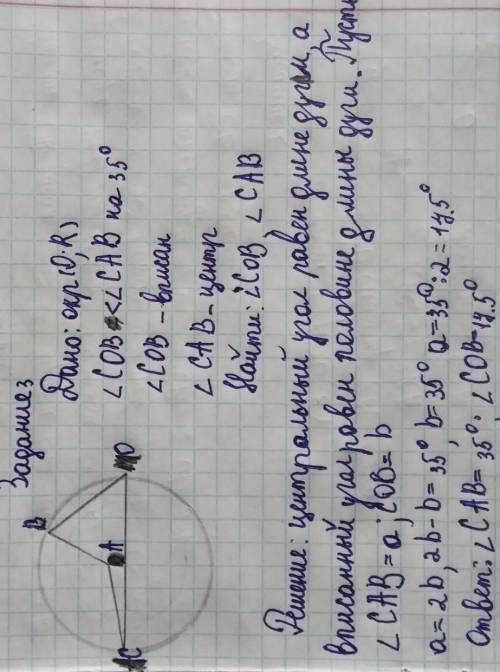 Задание 3
B
A
C
O
Дано: окр(O;R)
∠COB < ∠CAB на 35°
∠COB – вписан
∠CAB – центр
Найти: ∠COB, ∠CAB
Решение: центральный угол равен длине дуги, а
вписанный угол равен половине длины дуги. Пусть
∠CAB = a; COB = b
a = 2b, 2b - b = 35°, b = 35° a = 35° : 2 = 17.5°
Ответ: ∠CAB = 35°. ∠COB = 17.5°